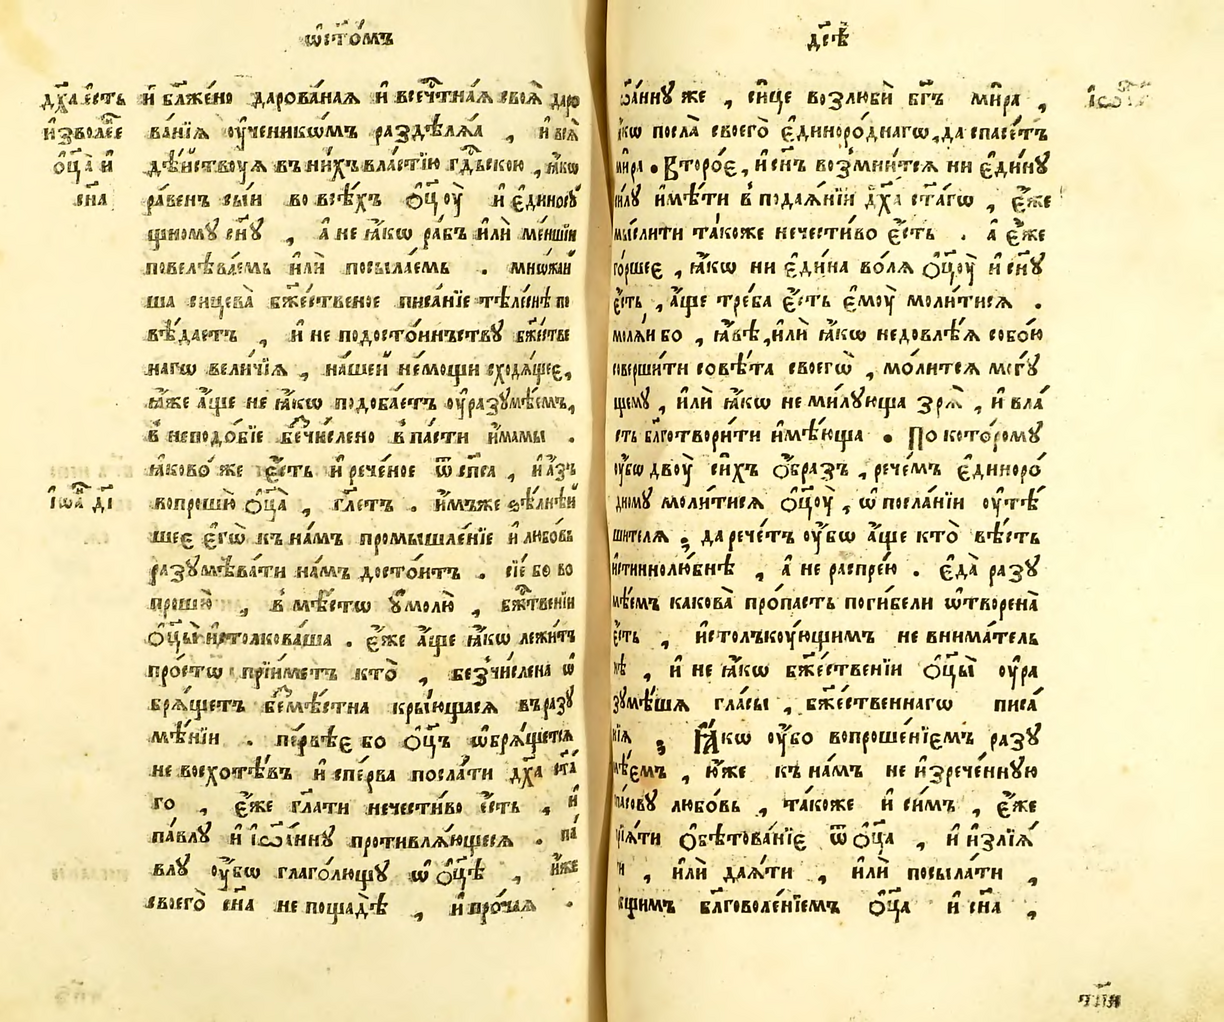 ѡ҆ ст҃о́мъ
дх҃а є҆́сть
и҆зволе́ех
ѻ҆ц҃а̀ и҆
сн҃а
и҆ бл҃же́но дарова́ная и҆ всечⷭ҇тна́я своѧ̀ даро
ва́нїѧ ѹ҆ченикѡ́мъ раздѣлѧ́ѧ , и҆ всѧ̀
дѣ́йствоуѧ въ ни́хъ вла́стїю гдⷭ҇ьскою , ꙗ҆́кѡ
ра́венъ сы́и во всѣ́хъ ѻ҆ц҃оу̀ и҆ є҆диносу́
щному сн҃у , а҆ не ꙗ҆́кѡ ра́бъ и҆лѝ ме́ншїи
повелѣва́емь и҆лѝ посыла́емь . мнѡ́жаи
ша сицева̀ бжⷭ҇е́ственое писа́нїе тѣле́снѣ по
вѣ́даетъ , и҆ не подосто́инъству бжⷭ҇е́стве
нагѡ вели́чїѧ , на́шей не́мощи сходѧ́щее ,
ꙗ҆̀же а҆́ще не ꙗ҆́кѡ подоба́етъ ѹ҆разумѣ́емъ ,
в неподо́бїе бе́чи́слено впа́сти и҆́мамы .
ꙗ҆ково́ же є҆́сть и҆ рече́ное ѿ сп҃са , и҆ а҆́зъ
і҆ѡⷩ҇а дı҃
вопрошю̀ ѻ҆ц҃а̀ , гл҃етъ . и҆́мъже ѕѣ́лнѣй
шее є҆гѡ̀ къ на́мъ промышле́нїе и҆ любо́вь
разумѣва́ти на́мъ досто́итъ . сїе́ бо во
прошю̀ , в мѣ́стѡ у҆молю̀ , бжⷭ҇твенїи
ѻ҆ц҃ы̀ и҆столкова́ша . є҆́же а҆́ще ꙗ҆́кѡ лежи́тъ
про́стѡ прїи́метъ кто̀ , безчи́слена ѡ҆
брѧ́щетъ безмѣ́стна кры́ющаясѧ въ разу
мѣ́нїи . пе́рвѣе бо ѻ҆ц҃ъ ѡ҆брѧ́щетсѧ
не восхотѣ́въ и҆спе́рва посла́ти дх҃а ст҃а́
го , є҆́же гл҃ати нечести́во є҆́сть , и҆
па́влу и҆ і҆ѡа́нну противлѧ́ющесѧ . па́
влу ѹ҆́бѡ глаго́лющу ѡ҆ ѻ҆ц҃ѣ̀ , и҆́же
своего̀ сн҃а не пощадѣ̀ , и҆ про́чая .
дс҃ѣ
ѡа́нну же , си́це возлюбѝ бг҃ъ ми́ра ,
ꙗ҆кѡ посла̀ своего̀ є҆диноро́днагѡ , да спасе́тъ
ми́ра . Второ́е , и҆ сн҃ъ возмни́тсѧ ни є҆ди́ну
си́лу и҆мѣ́ти в подаѧ́нїи дх҃а ст҃а́гѡ , є҆́же
мы́слити та́коже нечести́во є҆́сть . а҆ є҆́же
го́ршее , ꙗ҆́кѡ ни є҆ди́на во́лѧ ѻ҆ц҃оу̀ и҆ сн҃у
є҆́сть , а҆́ще тре́ба є҆́сть є҆моу̀ моли́тисѧ .
молѧ́и бо , ꙗ҆́вѣ , и҆лѝ ꙗ҆́кѡ недовлѣ́ѧ собо́ю
соверши́ти совѣ́та своегѡ̀ , мо́литсѧ могу́
щему , и҆лѝ ꙗ҆́кѡ не ми́лующа зрѧ̀ , и҆ вла́
сть бл҃готвори́ти и҆мѣ́юща . По кото́рому
ѹ҆́бѡ двоу̀ си́хъ ѻ҆́бразъ , рече́мъ є҆диноро́
дному моли́тисѧ ѻ҆ц҃оу̀ , ѡ҆ посла́нїи ѹ҆тѣ́
шителѧ ; да рече́тъ ѹ҆́бѡ а҆́ще кто̀ вѣ́сть
и҆стиннолю́бнѣ , а҆ не распре́ю . є҆да̀ разу
мѣ́емъ какова̀ про́пасть поги́бели ѿтворена̀
є҆́сть , и҆столъкоу́ющимъ не внима́тель
нѣ , и҆ не ꙗ҆́кѡ бжⷭ҇е́ственїи ѻ҆ц҃ы̀ ѹ҆ра
зумѣ́шѧ гла́сы , бжⷭ҇е́ственнагѡ писа́
нїѧ ; Ꙗ҆́кѡ ѹ҆́бо вопроше́нїемъ разу
мѣ́емъ , ю҆́же къ на́мъ не и҆зрече́нную
спа́сову любо́вь , та́коже и҆ си́мъ , є҆́же
прїѧ́ти ѻ҆бѣтова́нїе ѿ ѻ҆ц҃а̀ , и҆ и҆злїѧ́
ти , и҆лѝ даѧ́ти , и҆лѝ посыла́ти ,
ѻ҆́бщимъ бл҃говоле́нїемъ ѻ҆ц҃а̀ и҆ сн҃а ,